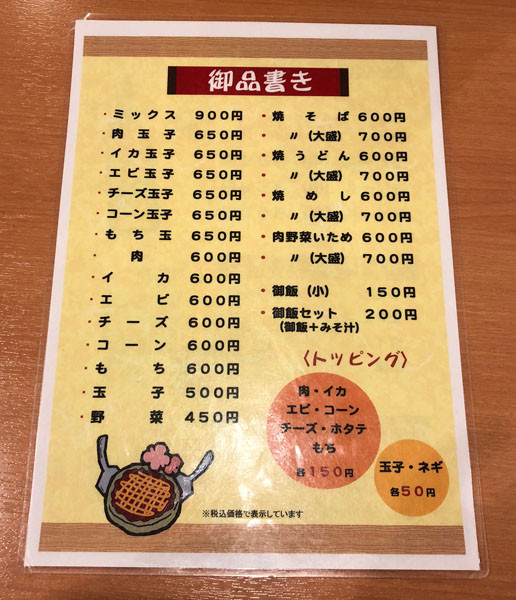 御品書き
・ミックス 900円
・肉玉子 650円
・イカ玉子 650円
・エビ玉子 650円
・チーズ玉子 650円
・コーン玉子 650円
・もち玉 650円
・肉 600円
・イカ 600円
・エビ 600円
・チーズ 600円
・コーン 600円
・もち 600円
・玉子 500円
・野菜 450円
・焼そば 600円
・〃(大盛) 700円
・焼うどん 600円
・〃(大盛) 700円
・焼めし 600円
・〃(大盛) 700円
・肉野菜いため 600円
・〃(大盛) 700円
・御飯(小) 150円
・御飯セット 200円
(御飯+みそ汁)
〈トッピング〉
肉・イカ
エビ・コーン
チーズ・ホタテ
もち
各150円
玉子・ネギ
各50円
※税込価格で表示しています